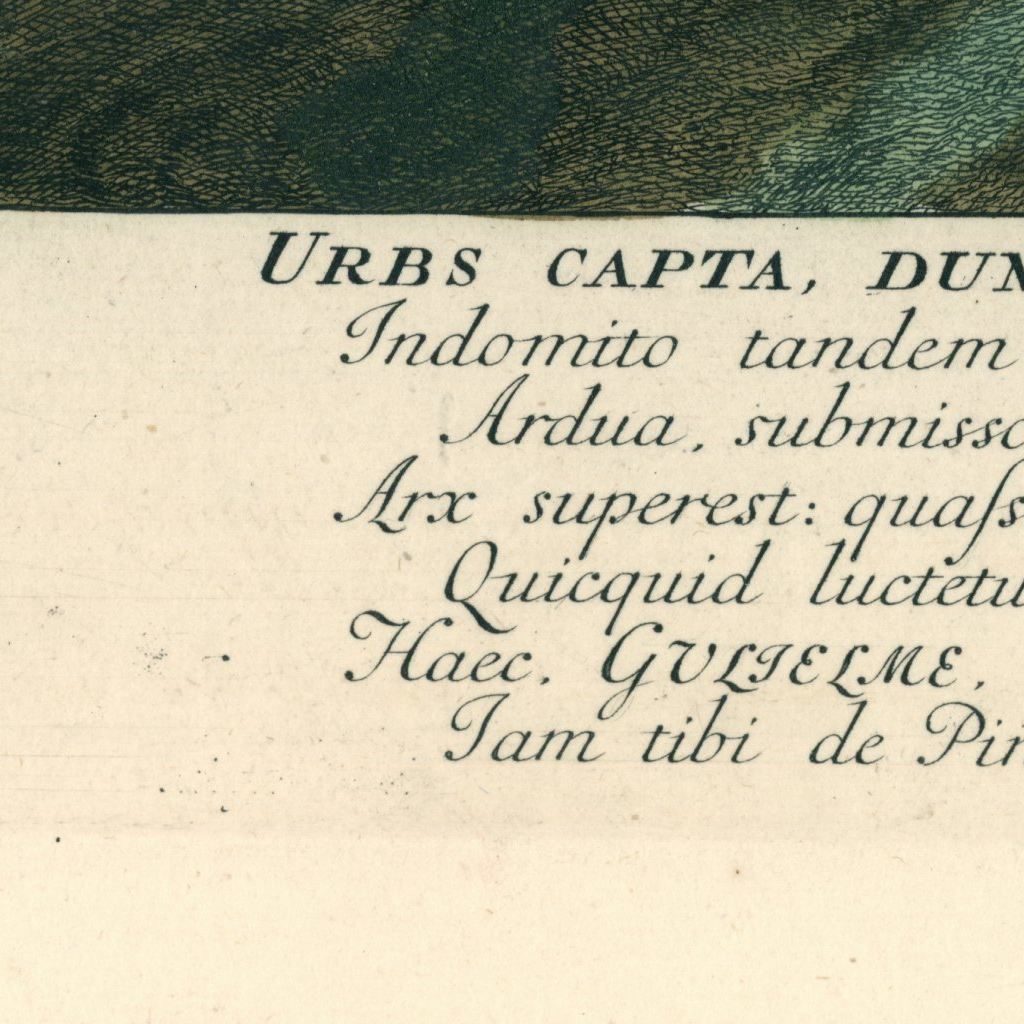 URBS CAPTA, DUM
Indomito tandem
Ardua, submisso
Arx superest: quaſs
Quicquid luctetu
Haec, GVLIELME,
Iam tibi de Pin